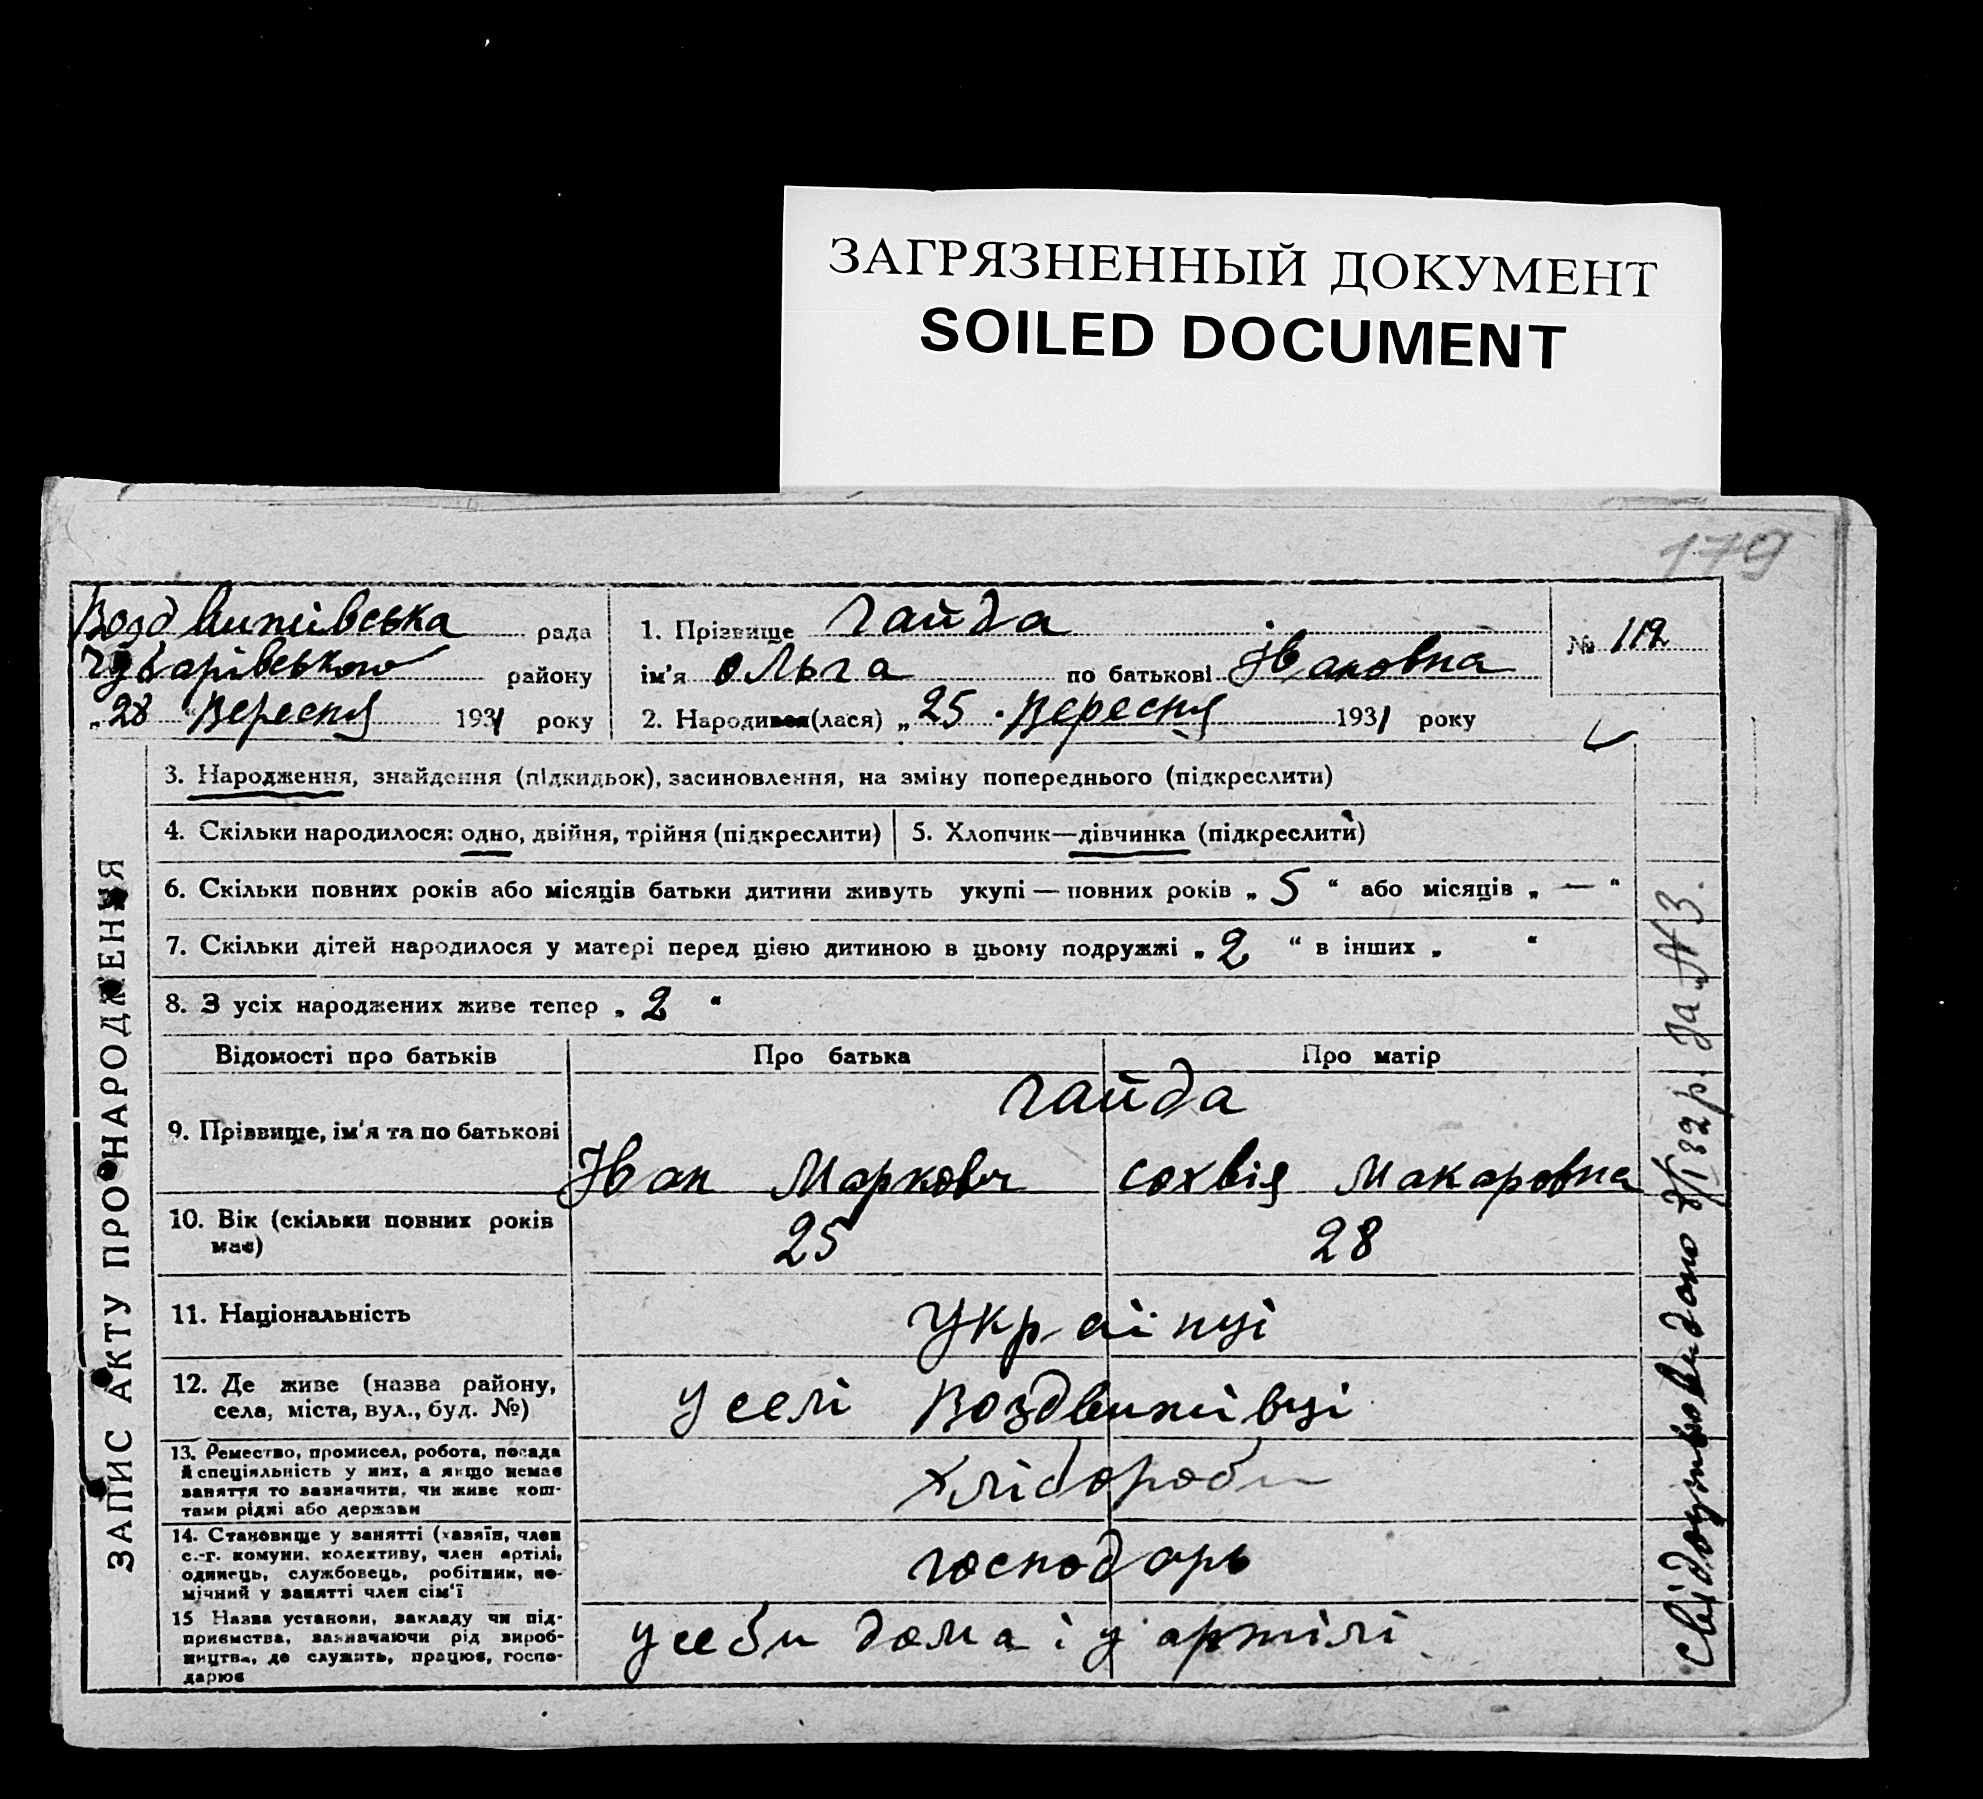 ЗАГРЯЗНЕННЫЙ ДОКУМЕНТ
SOILED DOCUMENT
179
Воздвижівська рада
Чубарівського району
„28 "Вересня 1931 року
1. Прізвище Гайда
ім'я Ольга по батькові Івановна
2. Народився(лася) „25 . Вересня 1931 року
№ 112
ЗАПИС АКТУ ПРО НАРОДЖЕННЯ
3. Народження, знайдення (підкидьок), засиновлення, на зміну попереднього (підкреслити)
4. Скільки народилося: одно, двійня, трійня (підкреслити)
5. Хлопчик—дівчинка (підкреслити)
6. Скільки повних років або місяців батьки дитини живуть укупі — повних років „ 5 “ або місяців „ — “
7. Скільки дітей народилося у матері перед цією дитиною в цьому подружжі „ 2 “ в інших „ “
8. З усіх народжених живе тепер „ 2 “
Відомості про батьків
Про батька
Про матір
9. Прізвище, ім'я та по батькові
Гайда
Іван Маркович
Сохвія Макаровна
10. Вік (скільки повних років
має)
25
28
11. Національність
Українці
12. Де живе (назва району,
села, міста, вул., буд. №)
У селі Воздвижівці
13. Ремество, промисел, робота, посада
й спеціяльність у них, а якщо немає
заняття то зазначити, чи живе кош-
тами рідні або держави
Хлібороби
14. Становище у занятті (хазяїн, член
с.-г. комуни, колективу, член артілі,
одинець, службовець, робітник, по-
мічний у занятті член сім'ї
господарь
15 Назва установи, закладу чи під-
приємства, зазначаючи рід вироб-
ництва, де служить, працює, госпо-
дарює
у себи дома і у артілі
свідоцтво видано 2/I 32 р. За №3.